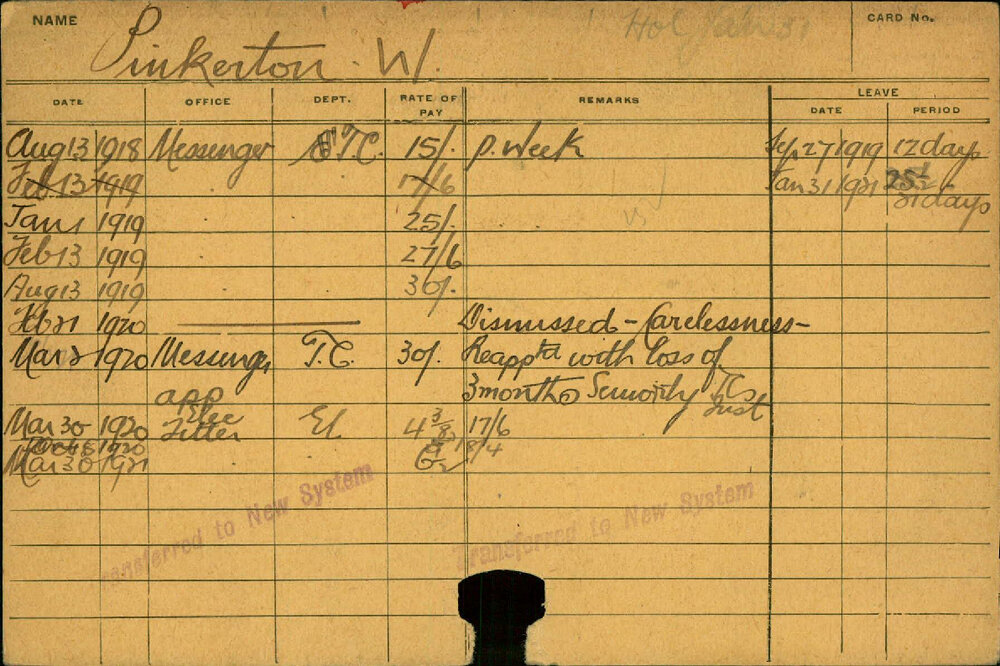 NAME
CARD No.
Pinkerton. W.
DATE OFFICE DEPT. RATE OF PAY REMARKS LEAVE
DATE PERIOD
Aug 13 1918 Messenger T.C. 15/. p. Week Sep 27 1919 12 days
Feb 13 1919 17/6 Jan 31 1921
31 days
Jan 1 1919 25/.
Feb 13 1919 27/6
Aug 13 1919 30/.
Feb 21 1920 Dismissed - Carelessness -
Mar 2 1920 Messenger T.C. 30/. Reapptd with loss of
3 months Seniority
app
Mar 30 1920 Elec Fitter El 4 3/8 17/6
Oct 5 1920 18/4
Mar 30 1921
Transferred to New System
Transferred to New System